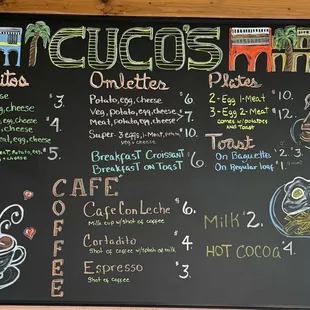 CUCO'S
itos
Omlettes
Plates
egg, cheese
$3.
Potato, egg, cheese
$6.
2-Egg 1-Meat
$10.
Veg, egg, cheese
3-Egg 2-Meat
$12.
$4.
meat, potato, egg, cheese
$7.
comes w/ potatoes
AND TOAST
$5.
Super- 3 eggs,
$10.
Toast
Breakfast Croissant
$6.
On Baguette
Breakfast on Toast
On Regular loaf
CAFÉ
COFFEE
Cafe Con Leche
$6.
Milk cup w/ shot of coffee
Milk $2.
Cortadito
$4.
HOT COCOA $4.
Shot of coffee w/ splash of milk
Espresso
$3.
Shot of coffee